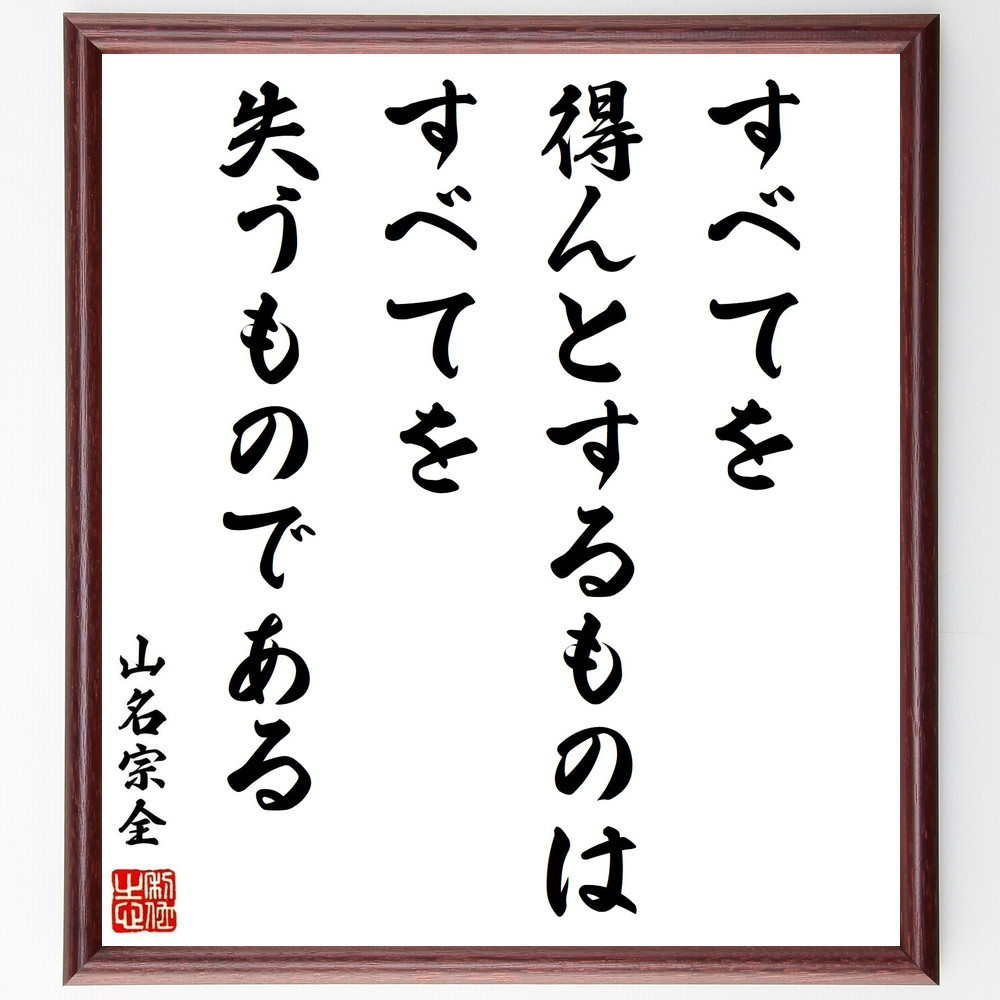 すべてを
得んとするものは
すべてを
失うものである
山名宗全